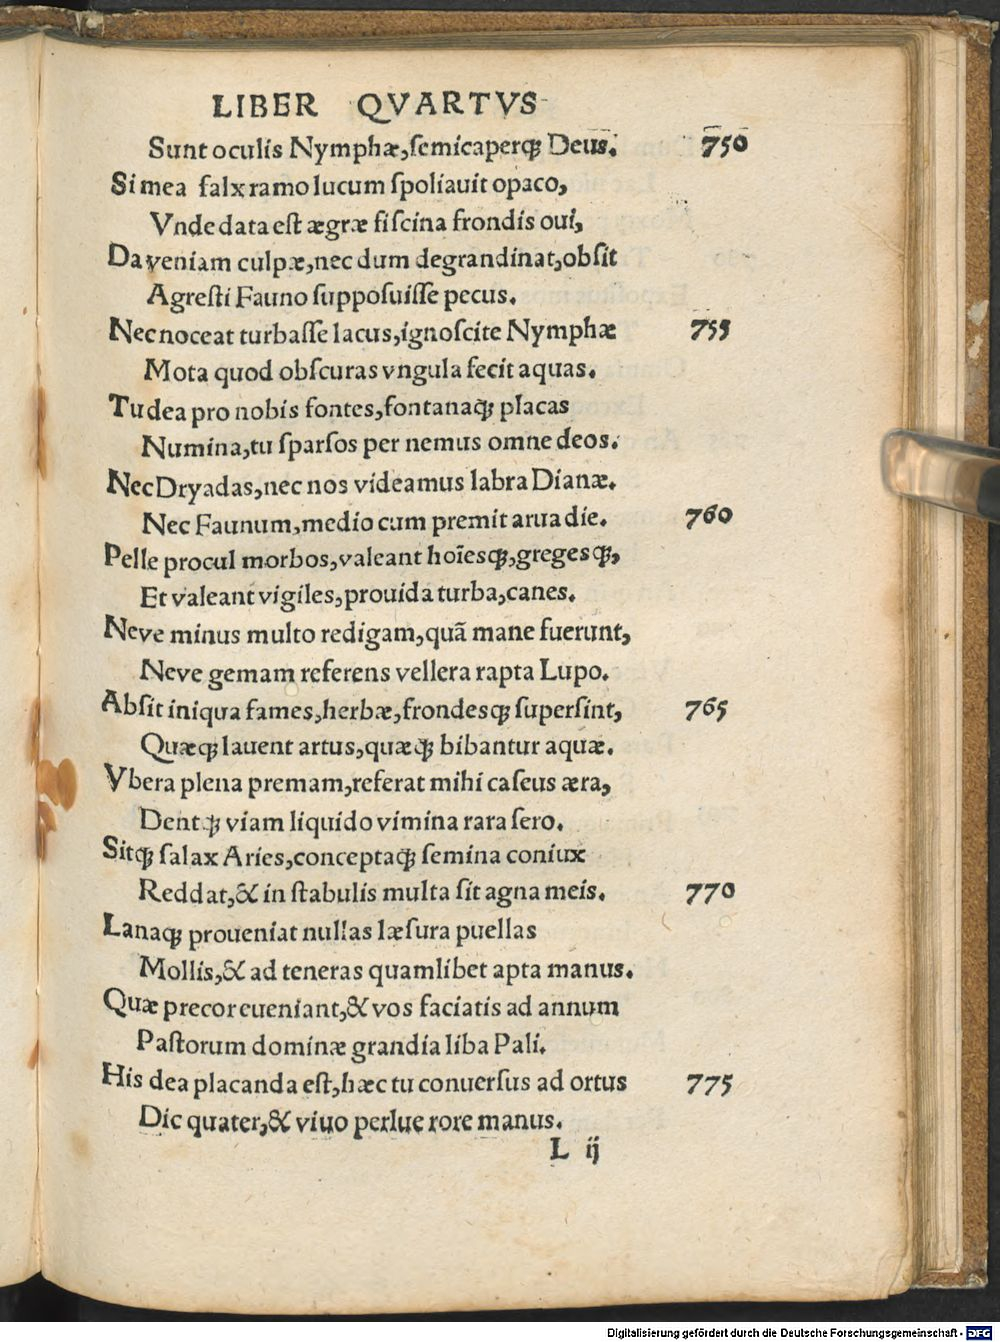 LIBER QVARTVS
Sunt oculis Nymphæ, ſemicaperqꝫ Deus. 750
Si mea falx ramo lucum ſpoliauit opaco,
Vnde data eſt ægræ fiſcina frondis oui,
Da veniam culpæ, nec dum degrandinat, obſit
Agreſti Fauno ſuppoſuiſſe pecus.
Nec noceat turbaſſe lacus, ignoſcite Nymphæ 755
Mota quod obſcuras vngula fecit aquas.
Tu dea pro nobis fontes, fontanaqꝫ placas
Numina, tu ſparſos per nemus omne deos.
Nec Dryadas, nec nos videamus labra Dianæ.
Nec Faunum, medio cum premit arua die. 760
Pelle procul morbos, valeant hoı̄esqꝫ, gregesqꝫ,
Et valeant vigiles, prouida turba, canes.
Neve minus multo redigam, quā mane fuerunt,
Neve gemam referens vellera rapta Lupo.
Abſit iniqua fames, herbæ, frondesqꝫ superſint, 765
Quæqꝫ lauent artus, quæqꝫ bibantur aquæ.
Vbera plena premam, referat mihi caſeus æra,
Dentqꝫ viam liquido vimina rara ſero.
Sitqꝫ ſalax Aries, conceptaqꝫ ſemina coniux
Reddat, & in ſtabulis multa ſit agna meis. 770
Lanaqꝫ proueniat nullas læſura puellas
Mollis, & ad teneras quamlibet apta manus.
Quæ precor eueniant, & vos faciatis ad annum
Paſtorum dominæ grandia liba Pali.
His dea placanda eſt, hæc tu conuerſus ad ortus 775
Dic quater, & viuo perlue rore manus.
L ij
Digitalisierung gefördert durch die Deutsche Forschungsgemeinschaft - DFG